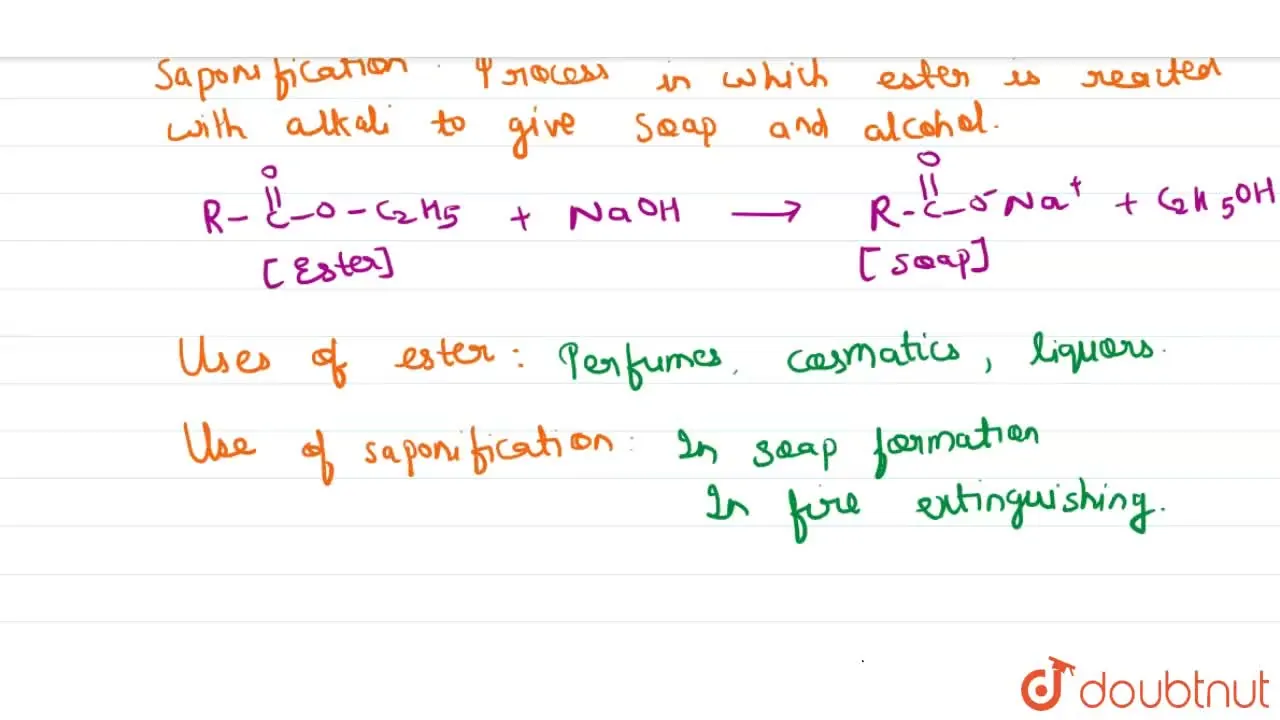 Saponification : Process in which ester is reacted
with alkali to give soap and alcohol.
O O
R-C-O-C2H5 + NaOH → R-C-O⁻Na⁺ + C2H5OH
[Ester] [soap]
Uses of ester : Perfumes, cosmatics, liquors.
Use of saponification : In soap formation
In fire extinguishing.
doubtnut